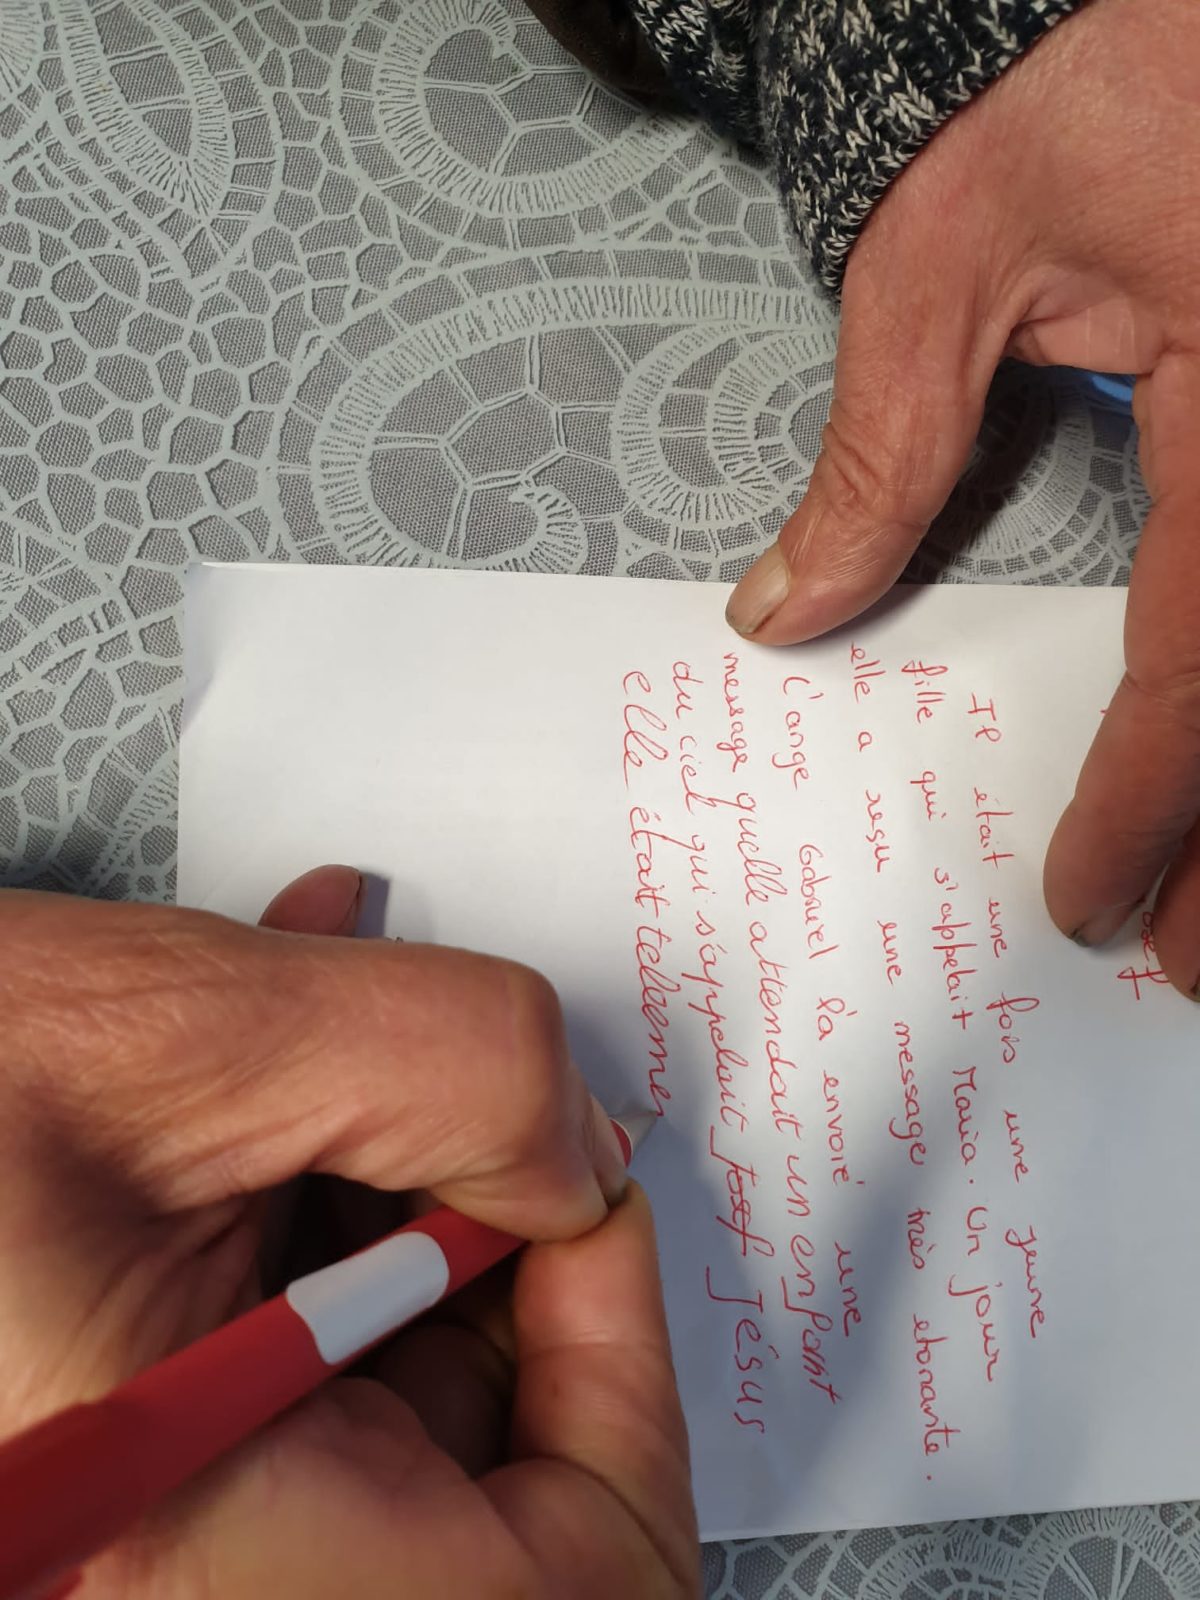 osef
Il était une fois une jeune
fille qui s'appelait Maria. Un jour
elle a resu une message très etonante.
L'ange Gabriel l'a envoié une
message quelle attendait un enfant
du ciel qui s'appelait Josef Jésus
elle était telleme